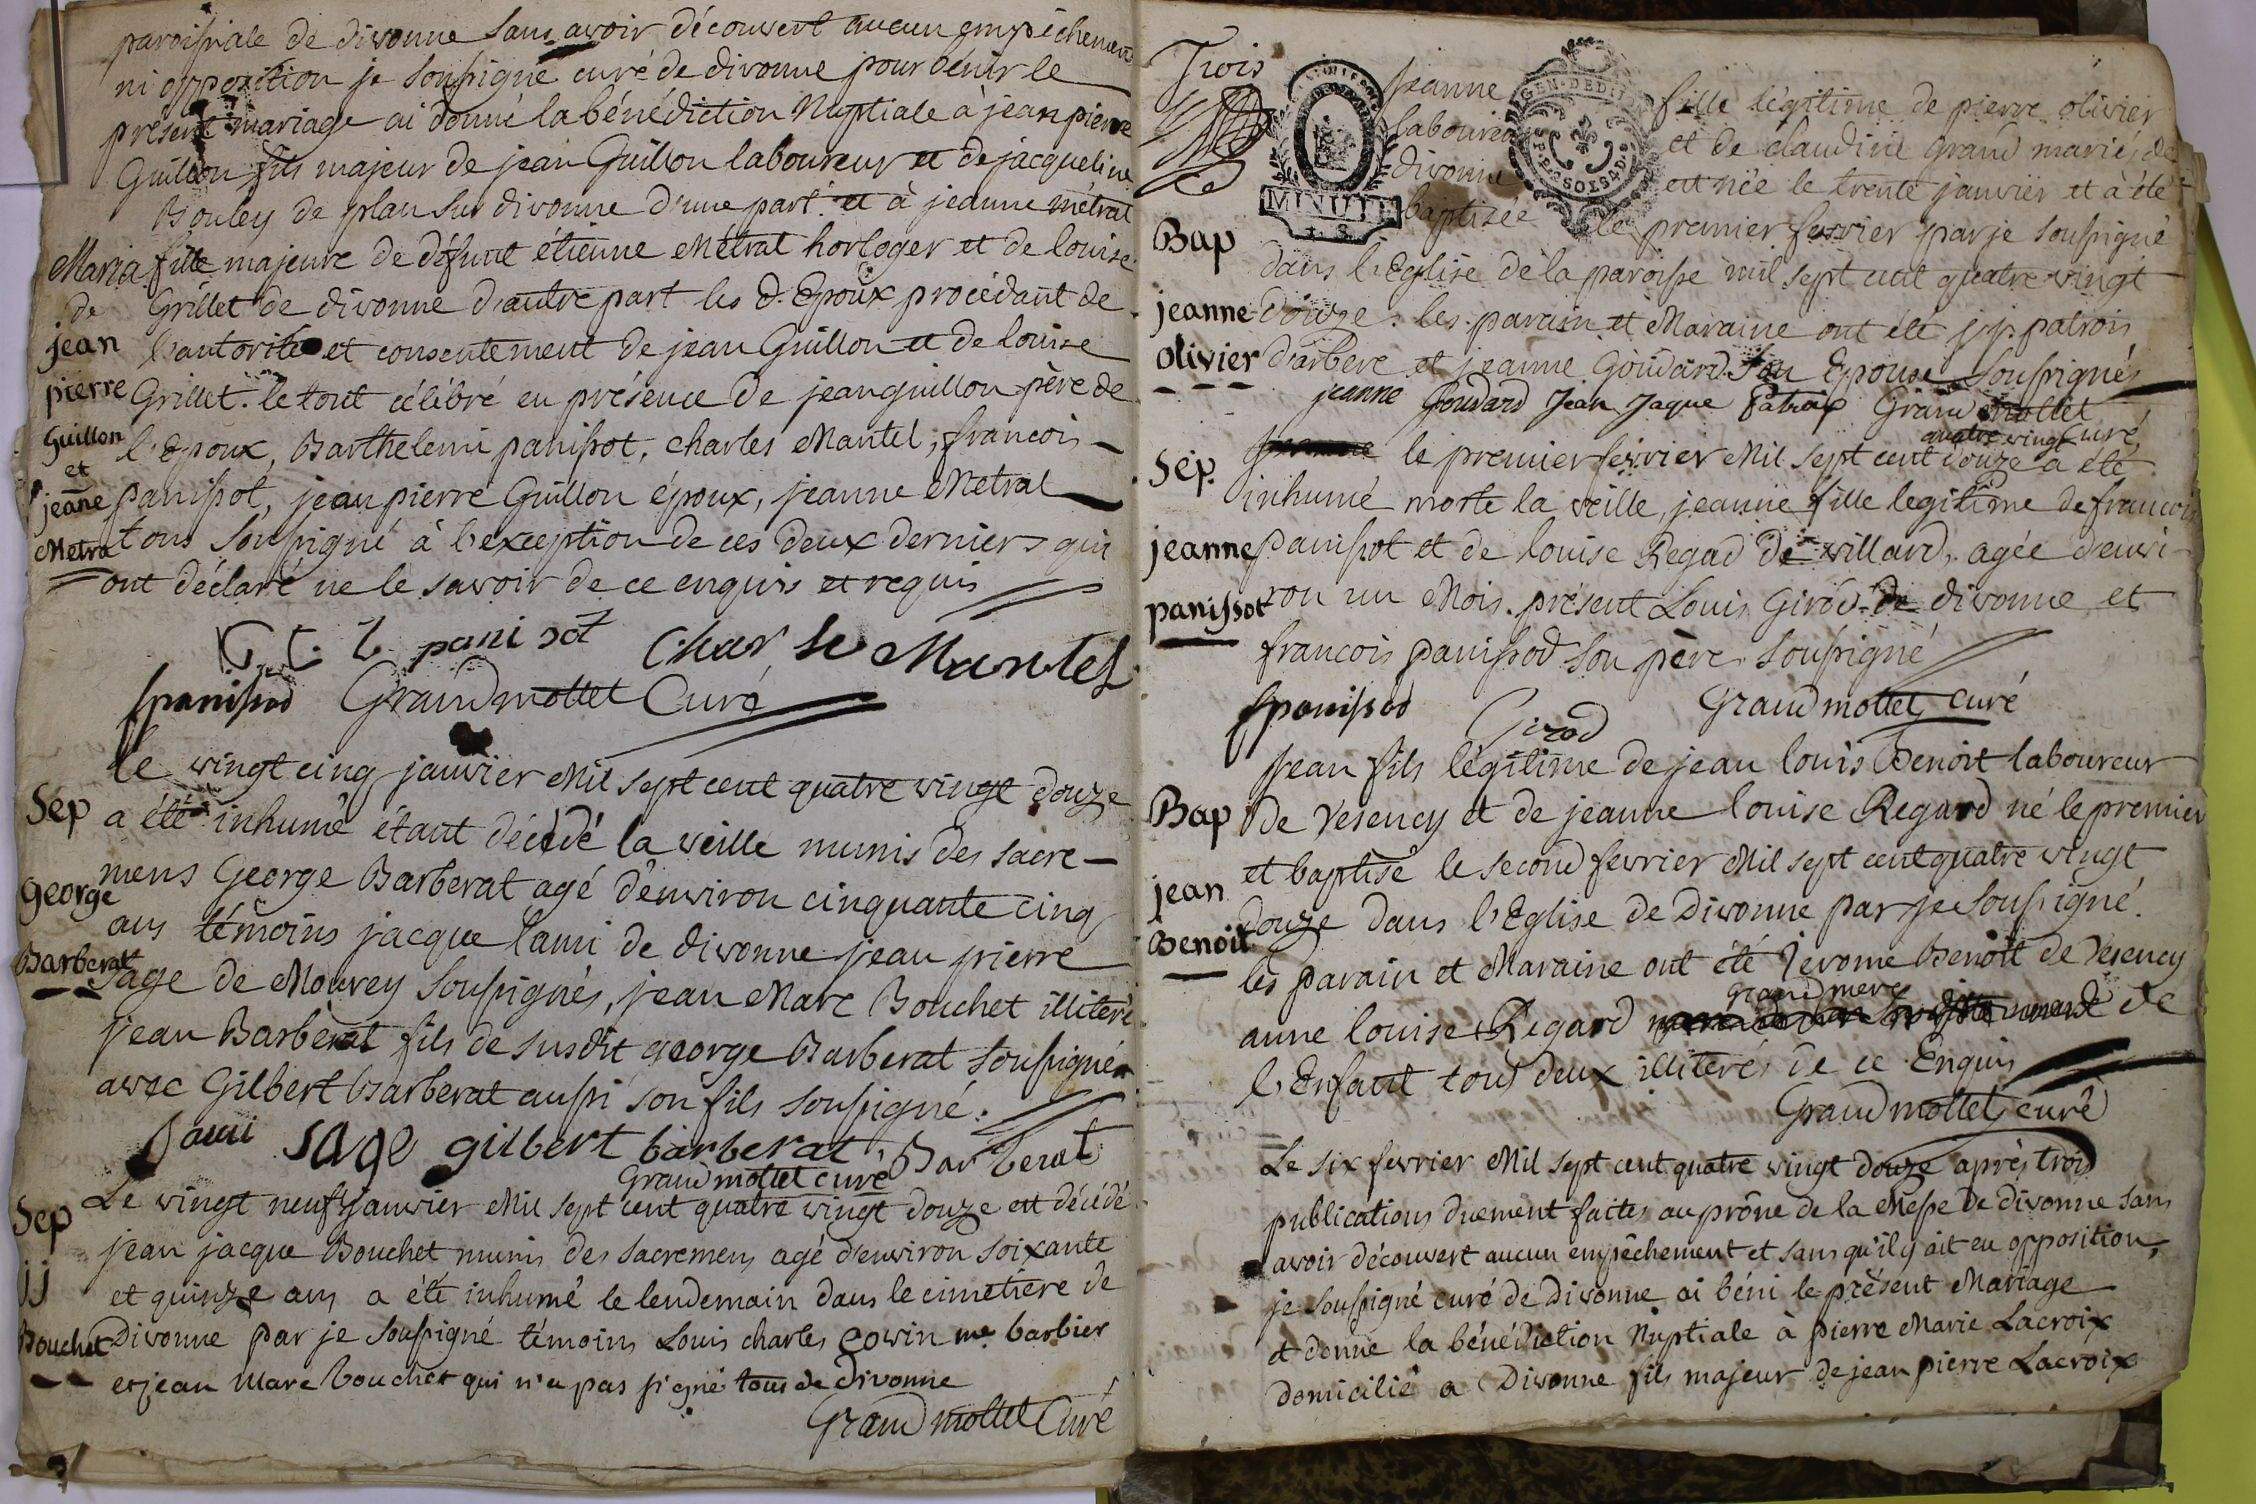 paroissiale de divonne sans avoir découvert aucun empêchement
ni opposition je soussigné curé de divonne pour bénir le
présent mariage ai donné la bénédiction Nuptiale à jean pierre
Guillon fils majeur de jean Guillon laboureur et de jacqueline
Bouley de plan sur divonne d'une part. et à jeanne métral
Maria fille majeure de défunt étienne Métral horloger et de louise
de Grillet de divonne d'autre part les d. Epoux procédant de
jean l'autorité et consentement de jean Guillon et de louise
pierre Grillet. le tout célébré en présence de jean guillon père de
Guillon l'Epoux, Barthelemi panissot, charles Mantel, francois
et
jeanne panissot, jean pierre Guillon époux, jeanne Metral
Metra tous soussigné à l'exception de ces deux derniers qui
ont déclaré ne le savoir de ce enquis et requis
panisot Charle Mantel
fpanissod Grandmottet Curé
le vingt cinq janvier Mil sept cent quatre vingt douze
Sep a été inhumé étant décédé la veille munis des sacre-
mens George Barberat agé d'environ cinquante cinq
George
ans témoins jacque lami de divonne jean pierre
Barberat
sage de Mourey soussignés, jean Marc Bouchet illiteré
jean Barberat fils de susdit george Barberat soussigné
avec Gilbert Barberat aussi son fils soussigné.
Lami sage gilbert barberat Barberat
Grandmottet curé
Sep Le vingt neuf janvier Mil sept cent quatre vingt douze est décédé
jean jacque Bouchet munis des sacremens agé d'environ soixante
jj et quinze ans a été inhumé le lendemain dans le cimetière de
Bouchet Divonne par je soussigné témoins Louis charles cowin me barbier
et jean Marc bouchet qui n'a pas signé tous de Divonne
Grandmottet Curé
Trois
MINUTE
GEN. DE DIJON
Jeanne fille légitime de pierre olivier
laboureur et de claudine grand mariés de
divonne est née le trente janvier et à été
baptisée le premier fevrier par je soussigné
Bap
dans l'Eglise de la paroisse mil sept cent quatre vingt
jeanne douze. les parain et Maraine ont été j.j. patrois
olivier d'arbere et jeanne Goudard son Epouse soussignés
jeanne Goudard Jean Jaque Patroix Grandmottet
curé
quatre vingt
Sép. le premier fevrier Mil sept cent douze a été
inhumé morte la veille, jeanne fille legitime de francois
jeanne panissot et de louise Regad de villard, agée d'envi-
panissot ron un Mois. présent Louis Girod de divonne et
francois panissod son père soussigné
fpanissod Girod Grandmottet curé
Jean fils légitime de jean louis Benoit laboureur
Bap de Vesency et de jeanne louise Regard né le premier
et baptisé le second fevrier Mil sept cent quatre vingt
jean
douze dans l'Eglise de Divonne par je soussigné.
Benoit
les parain et Maraine ont été Jerome Benoit de Vesency
grand mere
anne louise Regard de
l'Enfant tous deux illiterés de ce Enquis
Grandmottet curé
Le six fevrier Mil sept cent quatre vingt douze après trois
publications duement faites au prône de la Messe de Divonne sans
avoir découvert aucun empêchement et sans qu'il y ait eu opposition,
je soussigné curé de Divonne ai béni le présent Mariage
et donné la bénédiction Nuptiale à pierre Marie Lacroix
domicilié a Divonne fils majeur de jean pierre Lacroix